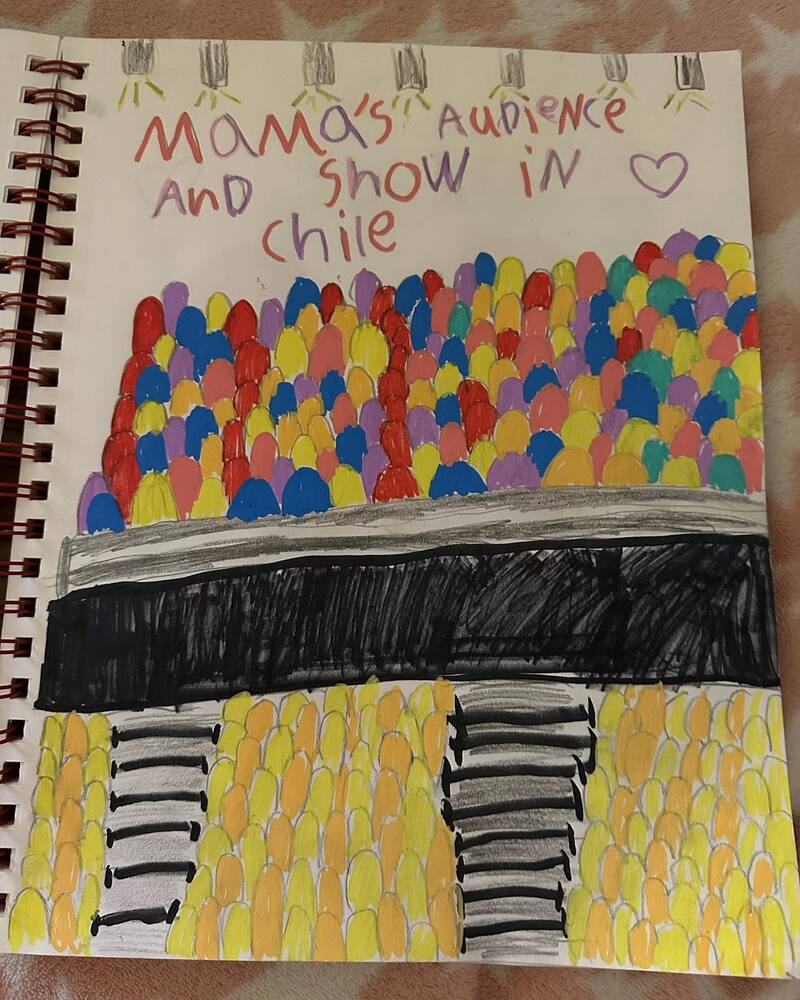 MaMa's AUDiENce
AnD ShOW iN
chile